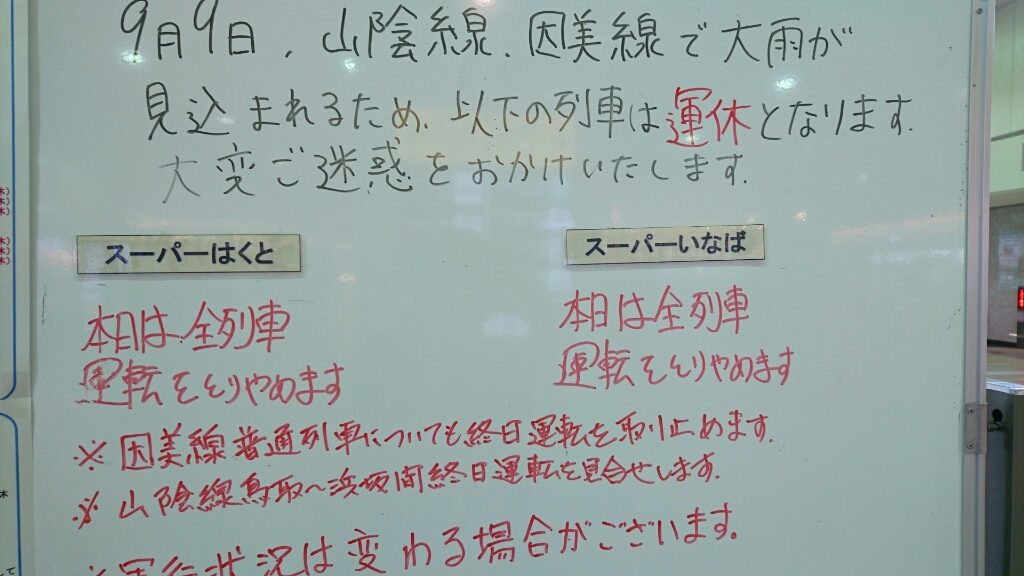 9月9日、山陰線、因美線で大雨が
見込まれるため、以下の列車は運休となります.
大変ご迷惑をおかけいたします.
スーパーはくと
スーパーいなば
本日は全列車
運転をとりやめます
本日は全列車
運転をとりやめます
※因美線普通列車についても終日運転を取り止めます.
※山陰線鳥取〜浜坂間終日運転を見合せします.
※運行状況は変わる場合がございます。